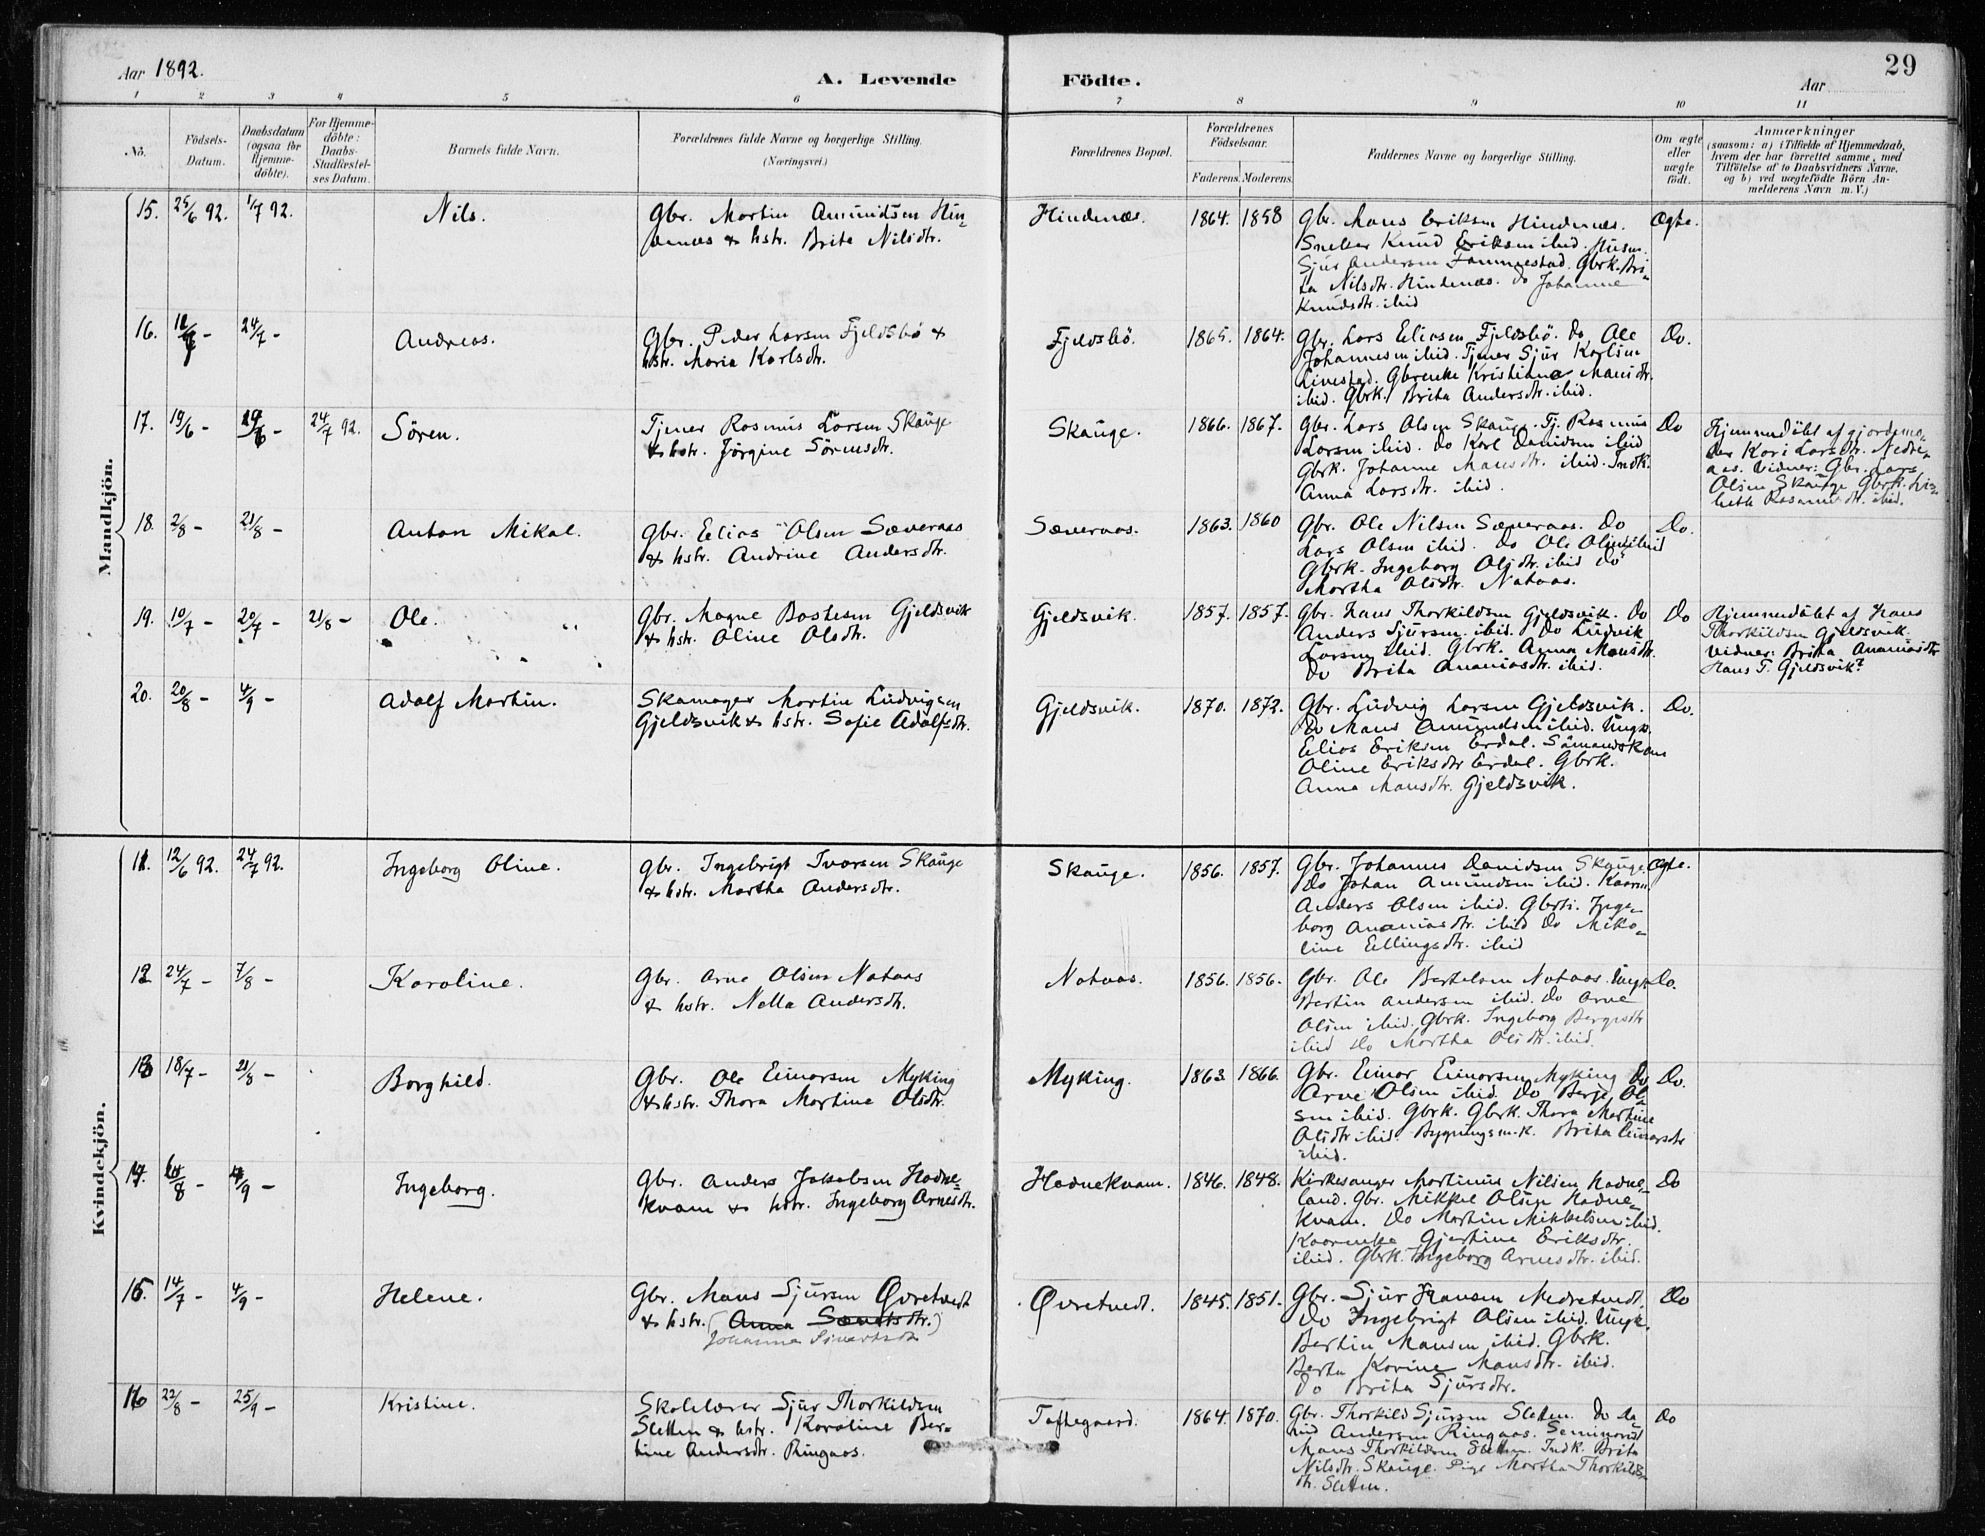 29
Aar 1892.
A. Levende Födte.
Aar
1 2 3 4 5 6 7 8 9 10 11
No.
Födsels-Datum.
Daabsdatum (ogsaa for Hjemme-döbte).
For Hjemme-döbte: Daabs-Stadfæstel-ses Datum.
Barnets fulde Navn.
Forældrenes fulde Navne og borgerlige Stilling.
(Næringsvei.)
Forældrenes Bopæl.
Forældrenes Födselsaar.
Faderens. Moderens.
Faddernes Navne og borgerlige Stilling.
Om ægte eller uægte födt.
Anmærkninger
(saasom: a) i Tilfælde af Hjemmedaab,
hvem der har forrettet samme, med
Tilföielse af to Daabsvidners Navne.
og b) ved uægtefödte Börn An-
melderens Navn m. V.)
Mandkjön.
15. 25/6 92. 1/7 92. Nils.
Gbr. Martin Amundsen Hin-
denæs & hstr. Brite Nilsdtr.
Hindenæs. 1864. 1858
Gbr. Mons Eriksen Hindenæs.
Snekker Knud Eriksen ibid. Husm.
Sjur Andersen Fammestad. Gbrk. Bri-
ta Nilsdtr. Hindenæs. Do Johanne
Knudsdtr. ibid
Ægte.
16. 24/7 - Andreas.
Gbr. Peder Larsen Fjeldsbö &
hstr. Maria Karlsdtr.
Fjeldsbö. 1865. 1864.
Gbr. Lars Eliasen Fjeldsbö. Do Ole
Johannesen ibid. Tjener Sjur Karlsen
Livestad. Gbrenke Kristiane Mansdtr.
ibid. Gbrk. Brita Andersdtr. ibid.
Do.
17. 19/6 - 24/7 92. Sören.
Tjener Rasmus Larsen Skauge
& hstr. Jörgine Sörensdtr.
Skauge. 1866. 1867.
Gbr. Lars Olsen Skauge. Tj. Rasmus
Larsen ibid. Do Karl Davidsen ibid
Gbrk. Johanne Mansdtr. ibid. Indk.
Anna Larsdtr. ibid.
Do
Hjemmedöbt af gjordemo-
der Kari Larsdtr. Nedre-
aas. Vidner: Gbr. Lars
Olsen Skauge Gbrk. Lis-
beth Rasmusdtr. ibid.
18. 2/8 - 21/8 - Anton Mikal.
Gbr. Elias Olsen Sæveraas
& hstr. Andrine Andersdtr.
Sæveraas. 1863. 1860
Gbr. Ole Nilsen Sæveraas. Do
Lars Olsen ibid. Do Ole Olsen ibid
Gbrk. Ingeborg Olsdtr. ibid Do
Martha Olsdtr. Nataas.
Do.
19. 10/7 - 20/7 - 21/8 - Ole.
Gbr. Magne Bastesen Gjeldsvik
& hstr. Oline Olsdtr.
Gjeldsvik. 1857. 1857.
Gbr. Hans Thorkildsen Gjeldsvik. Do
Anders Sjursen ibid. Do Ludvik
Larsen ibid. Gbrk. Anna Monsdtr.
Do Brita Ananiasdtr. ibid.
Do
Hjemmedöbt af Hans
Thorkildsen Gjeldsvik.
Vidner: Brita Ananiasdtr
Hans T. Gjeldsvik?
20. 20/8 - 4/9 - Adolf Martin.
Skomager Martin Ludvigsen
Gjeldsvik & hstr. Sofie Adolfsdtr.
Gjeldsvik. 1870. 1872.
Gbr. Ludvig Larsen Gjeldsvik.
Do Mans Amundsen ibid. Ungk.
Elias Eriksen Erdal. Sömandskone
Oline Eriksdtr Erdal. Gbrk.
Anna Mansdtr. Gjeldsvik.
Do.
Kvindekjön.
11. 12/6 92. 24/7 92. Ingeborg Oline.
Gbr. Ingebrigt Ivarsen Skauge
& hstr. Martha Andersdtr.
Skauge. 1856. 1857.
Gbr. Johannes Davidsen Skauge.
Do Johan Amundsen ibid. Kaarm.
Anders Olsen ibid. Gbrk. Inge-
borg Ananiasdtr. ibid Do Miko-
line Ellingsdtr. ibid
Ægte.
12 24/7 - 7/8 - Karoline.
Gbr. Arne Olsen Nataas
& hstr. Nella Andersdtr.
Nataas. 1856. 1856.
Gbr. Ole Bertelsen Nataas. Ungk
Bertin Andersen ibid. Do Arne
Olsen ibid. Gbrk. Ingeborg Bergesdtr
ibid Do Martha Olsdtr. ibid.
Do.
13 18/7 - 21/8 - Borghild.
Gbr. Ole Einarsen Myking
& hstr. Thora Martine Olsdtr.
Myking. 1863. 1866.
Gbr. Einar Einarsen Myking Do
Arne Olsen ibid. Do Berje Ol-
sen ibid. Gbrk. Gbrk. Thora Martine
Olsdtr ibid. Bygningsm.k. Brita Einarsdtr
ibid.
Do.
14. 4/9 - Ingeborg.
Gbr. Anders Jakobsen Hodne-
kvam & hstr. Ingeborg Arnesdtr.
Hodnekvam. 1846. 1848.
Kirkesanger Martinus Nilsen Hodne-
land. Gbr. Mikkel Olsen Hodne-
kvam. Do Martin Mikkelsen ibid.
Kaarenke Gjertine Eriksdtr.
ibid. Gbrk. Ingeborg Arnesdtr. ibid.
Do
15. 14/7 - 4/9 - Helene.
Gbr. Mans Sjursen Øvretvedt
& hstr. (Anna
Johanna Sjursdtr
Øvretvedt. 1845. 1851.
Gbr. Sjur Hansen Nedretvedt.
Do Ingebrigt Olsen ibid. Ungk.
Bertin Mansen ibid. Gbrk.
Berta Karine Mansdtr. ibid.
Do Brita Sjursdtr.
Do
16 22/8 - 25/9 - Kristine.
Skolelærer Sjur Thorkildsen
Sletten & hstr. Karoline Ber-
tine Andersdtr. Ringaas.
Toftegaard. 1864. 1870.
Gbr. Thorkild Sjursen Sletten. Do Da-
vid Andersen Ringaas. Seminarist
Mans Thorkildsen Sletten. Indk. Brita
Nilsdtr. Skauge. Pige Martha Thorkilds-
dtr. Sletten.
Do